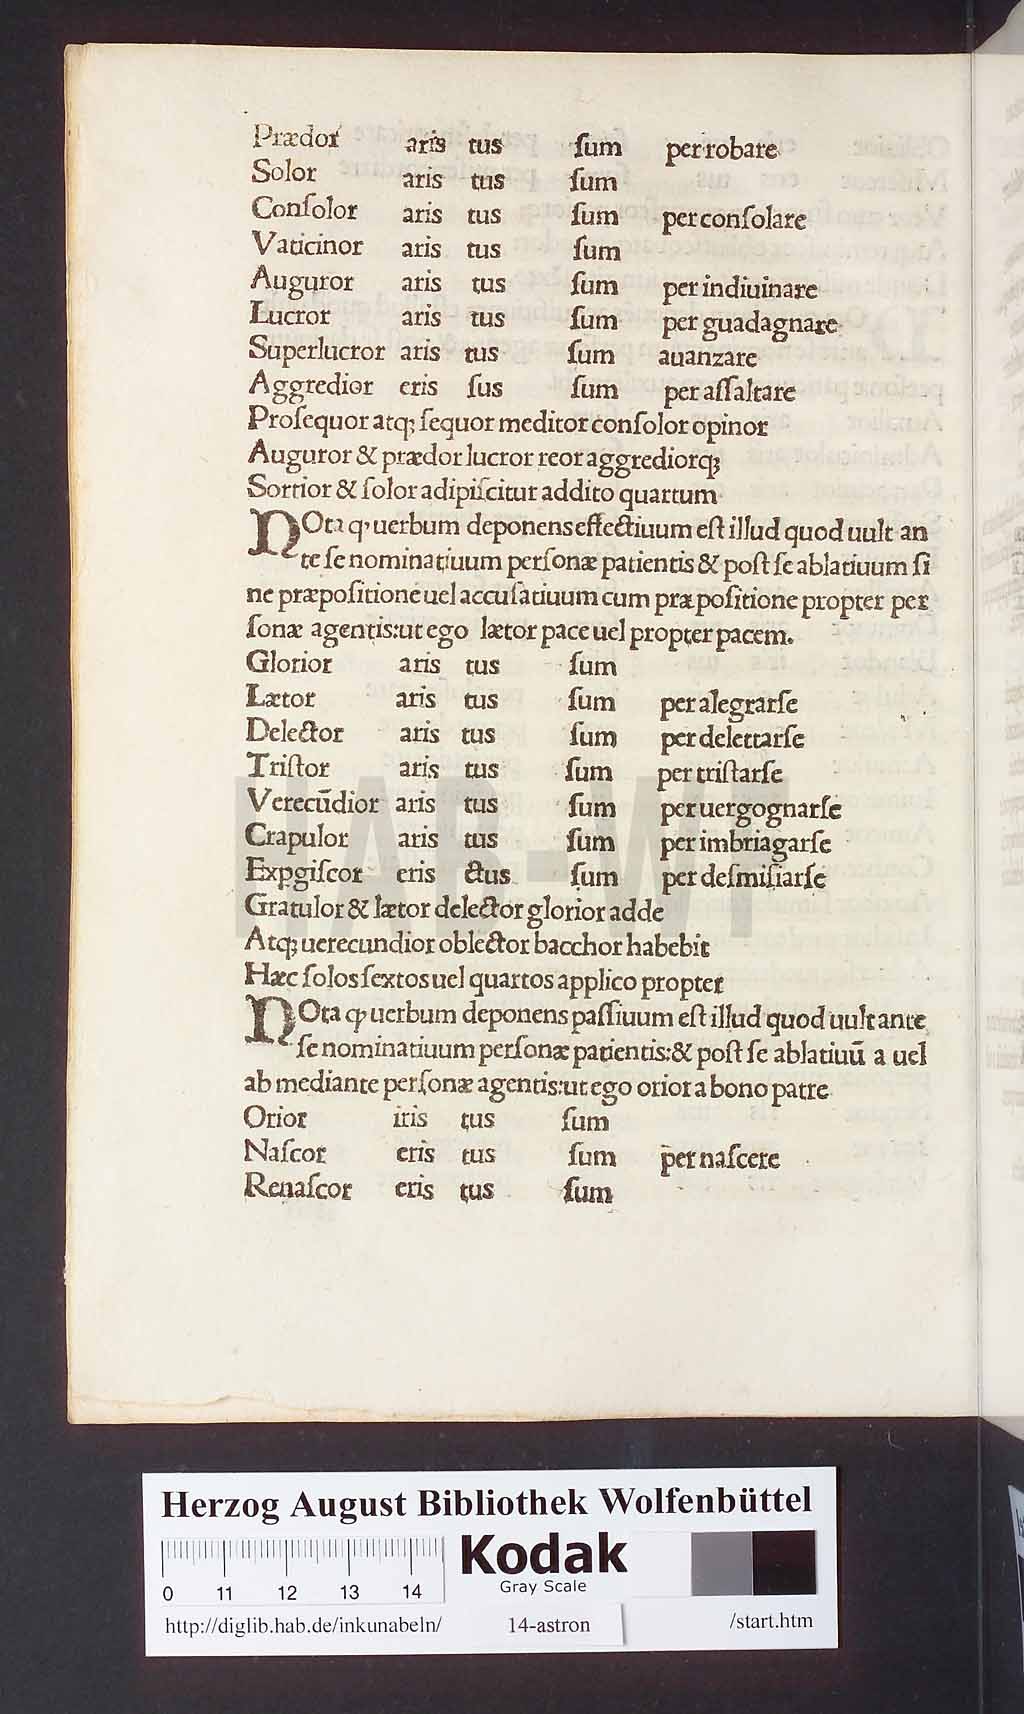 Prædor aris tus ſum per robare
Solor aris tus ſum
Conſolor aris tus ſum per conſolare
Vaticinor aris tus ſum
Auguror aris tus ſum per indiuinare
Lucror aris tus ſum per guadagnare
Superlucror aris tus ſum auanzare
Aggredior eris ſus ſum per aſſaltare
Proſequor atq; ſequor meditor conſolor opinor
Auguror & prædor lucror reor aggrediorq;
Sortior & ſolor adipiſcitur addito quartum
NOta ꝙ uerbum deponens effectiuum eſt illud quod uult an
te ſe nominatiuum perſonæ patientis & poſt ſe ablatiuum ſi
ne præpoſitione uel accuſatiuum cum præpoſitione propter per
ſonæ agentis:ut ego lætor pace uel propter pacem.
Glorior aris tus ſum
Lætor aris tus ſum per alegrarſe
Delector aris tus ſum per delettarſe
Triſtor aris tus ſum per triſtarſe
Verecūdior aris tus ſum per uergognarſe
Crapulor aris tus ſum per imbriagarſe
Expgiſcor eris ctus ſum per deſmiſiarſe
Gratulor & lætor delector glorior adde
Atq; uerecundior oblector bacchor habebit
Hæc ſolos ſextos uel quartos applico propter
NOta ꝙ uerbum deponens paſſiuum eſt illud quod uult ante
ſe nominatiuum perſonæ patientis:& poſt ſe ablatiuū a uel
ab mediante perſonæ agentis:ut ego orior a bono patre
Orior iris tus ſum
Naſcor eris tus ſum per naſcere
Renaſcor eris tus ſum
HAB-WF
Herzog August Bibliothek Wolfenbüttel
Kodak
Gray Scale
0 11 12 13 14
http://diglib.hab.de/inkunabeln/ 14-astron /start.htm